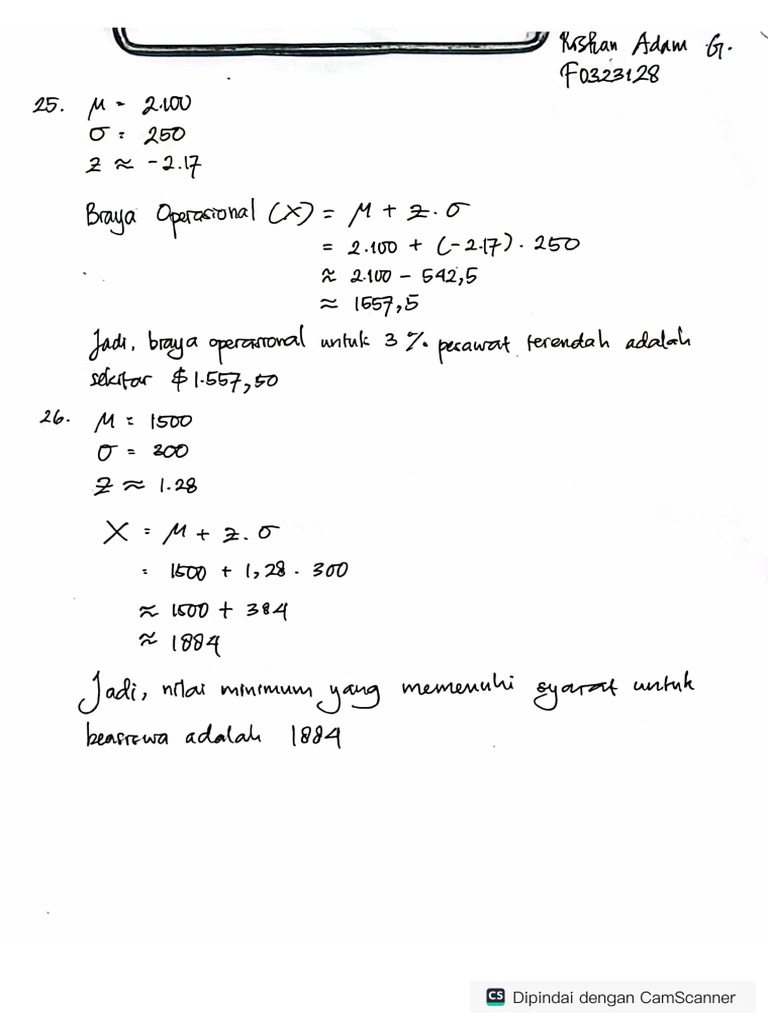 Krshan Adam G.
F0323128
25. μ = 2.100
σ = 250
z ≈ -2.17
Biaya Operasional (X) = μ + z . σ
= 2.100 + (-2.17) . 250
≈ 2.100 - 542,5
≈ 1557,5
Jadi, biaya operasional untuk 3 % pesawat terendah adalah
sekitar $1.557,50
26. μ = 1500
σ = 300
z ≈ 1.28
X = μ + z . σ
= 1500 + 1,28 . 300
≈ 1500 + 384
≈ 1884
Jadi, nilai minimum yang memenuhi syarat untuk
beasiswa adalah 1884
CS Dipindai dengan CamScanner